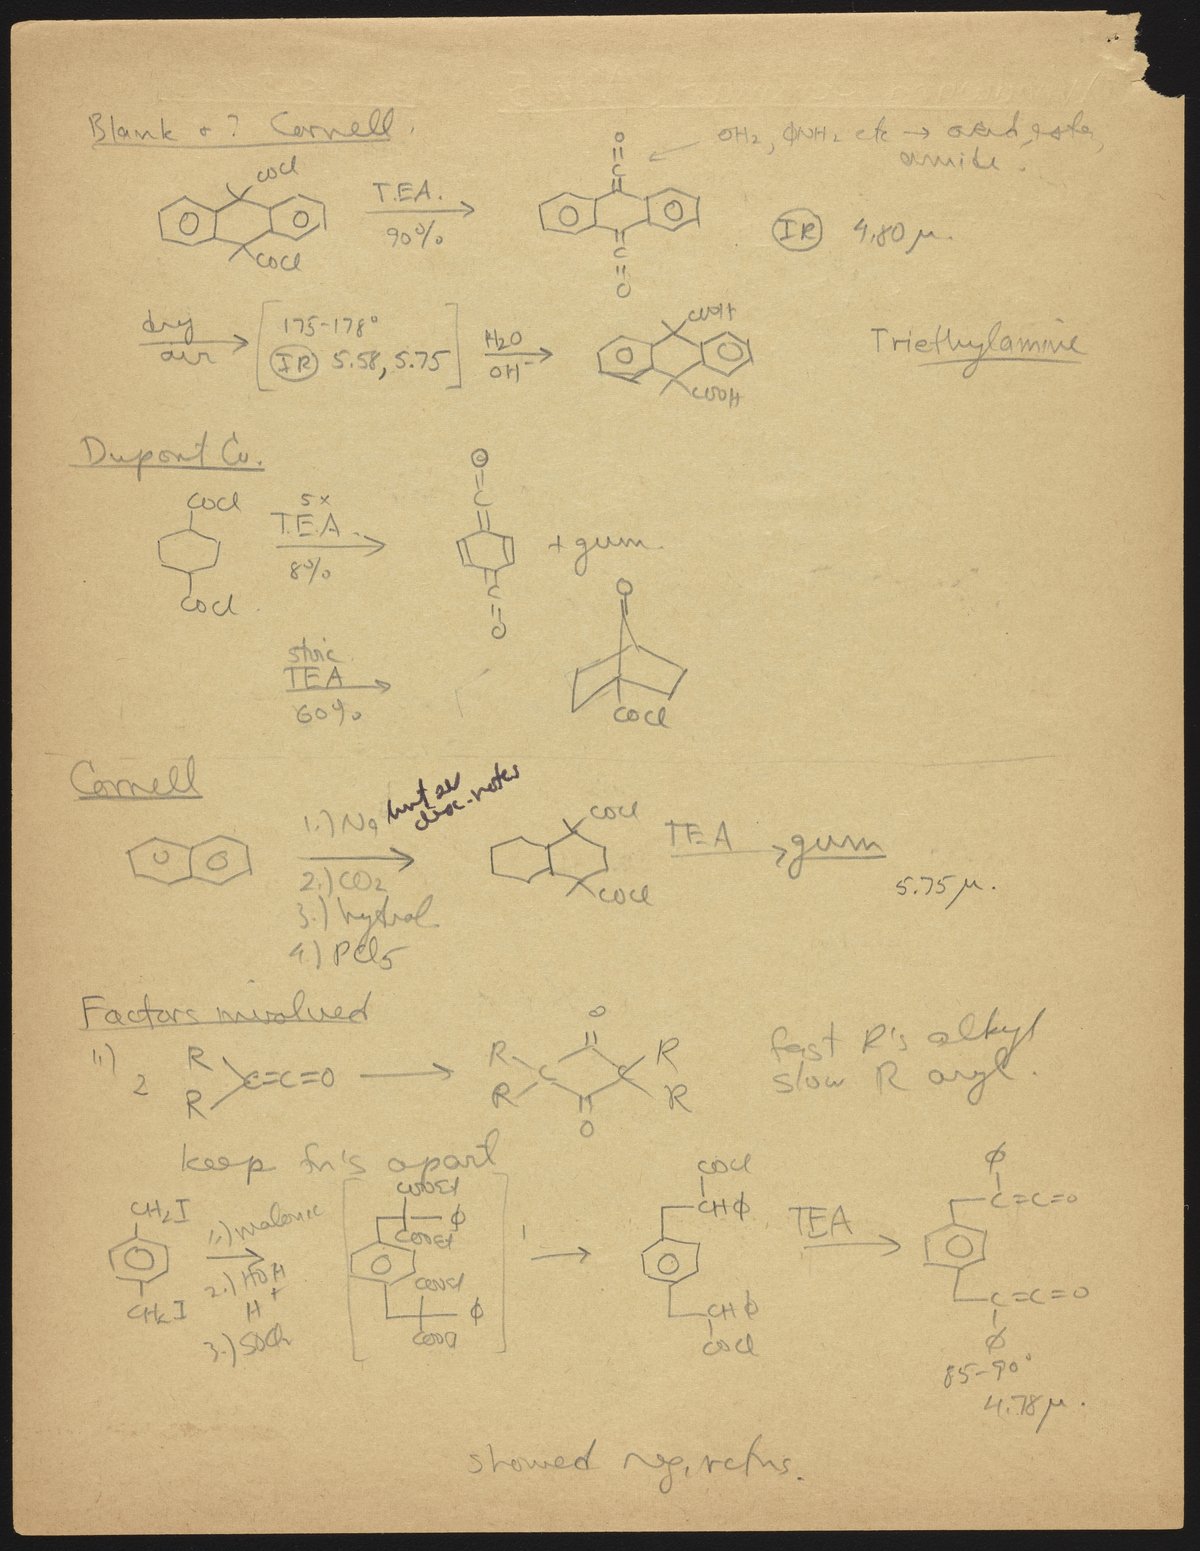 Blank + ? Cornell.
OH2, ΦNH2 etc → acid, ester,
amide.
COCl
T.E.A.
90%
COCl
O
C
C
O
IR 4.80 μ.
dry
air
175-178°
IR 5.58, 5.75
H2O
OH-
COOH
COOH
Triethylamine
Dupont Co.
COCl
COCl
5x
T.E.A.
8%
O
C
C
O
+ gum.
stoic.
TEA
60%
O
COCl
Cornell
1.) Na
2.) CO2
3.) hydrol.
4.) PCl5
notes
COCl
COCl
TEA
gum
5.75 μ.
Factors involved
1.)
2
R
R
C=C=O
O
R
R
C
C
R
R
O
fast R's alkyl
slow R aryl.
keep fn's apart
CH2I
CH2I
1.) malonic
2.) HOH
H+
3.) SOCl2
COOEt
Φ
COOEt
COOEt
Φ
COOEt
COCl
CHΦ
CHΦ
COCl
TEA
Φ
C=C=O
C=C=O
Φ
85-90°
4.78 μ.
showed reg. rctns.